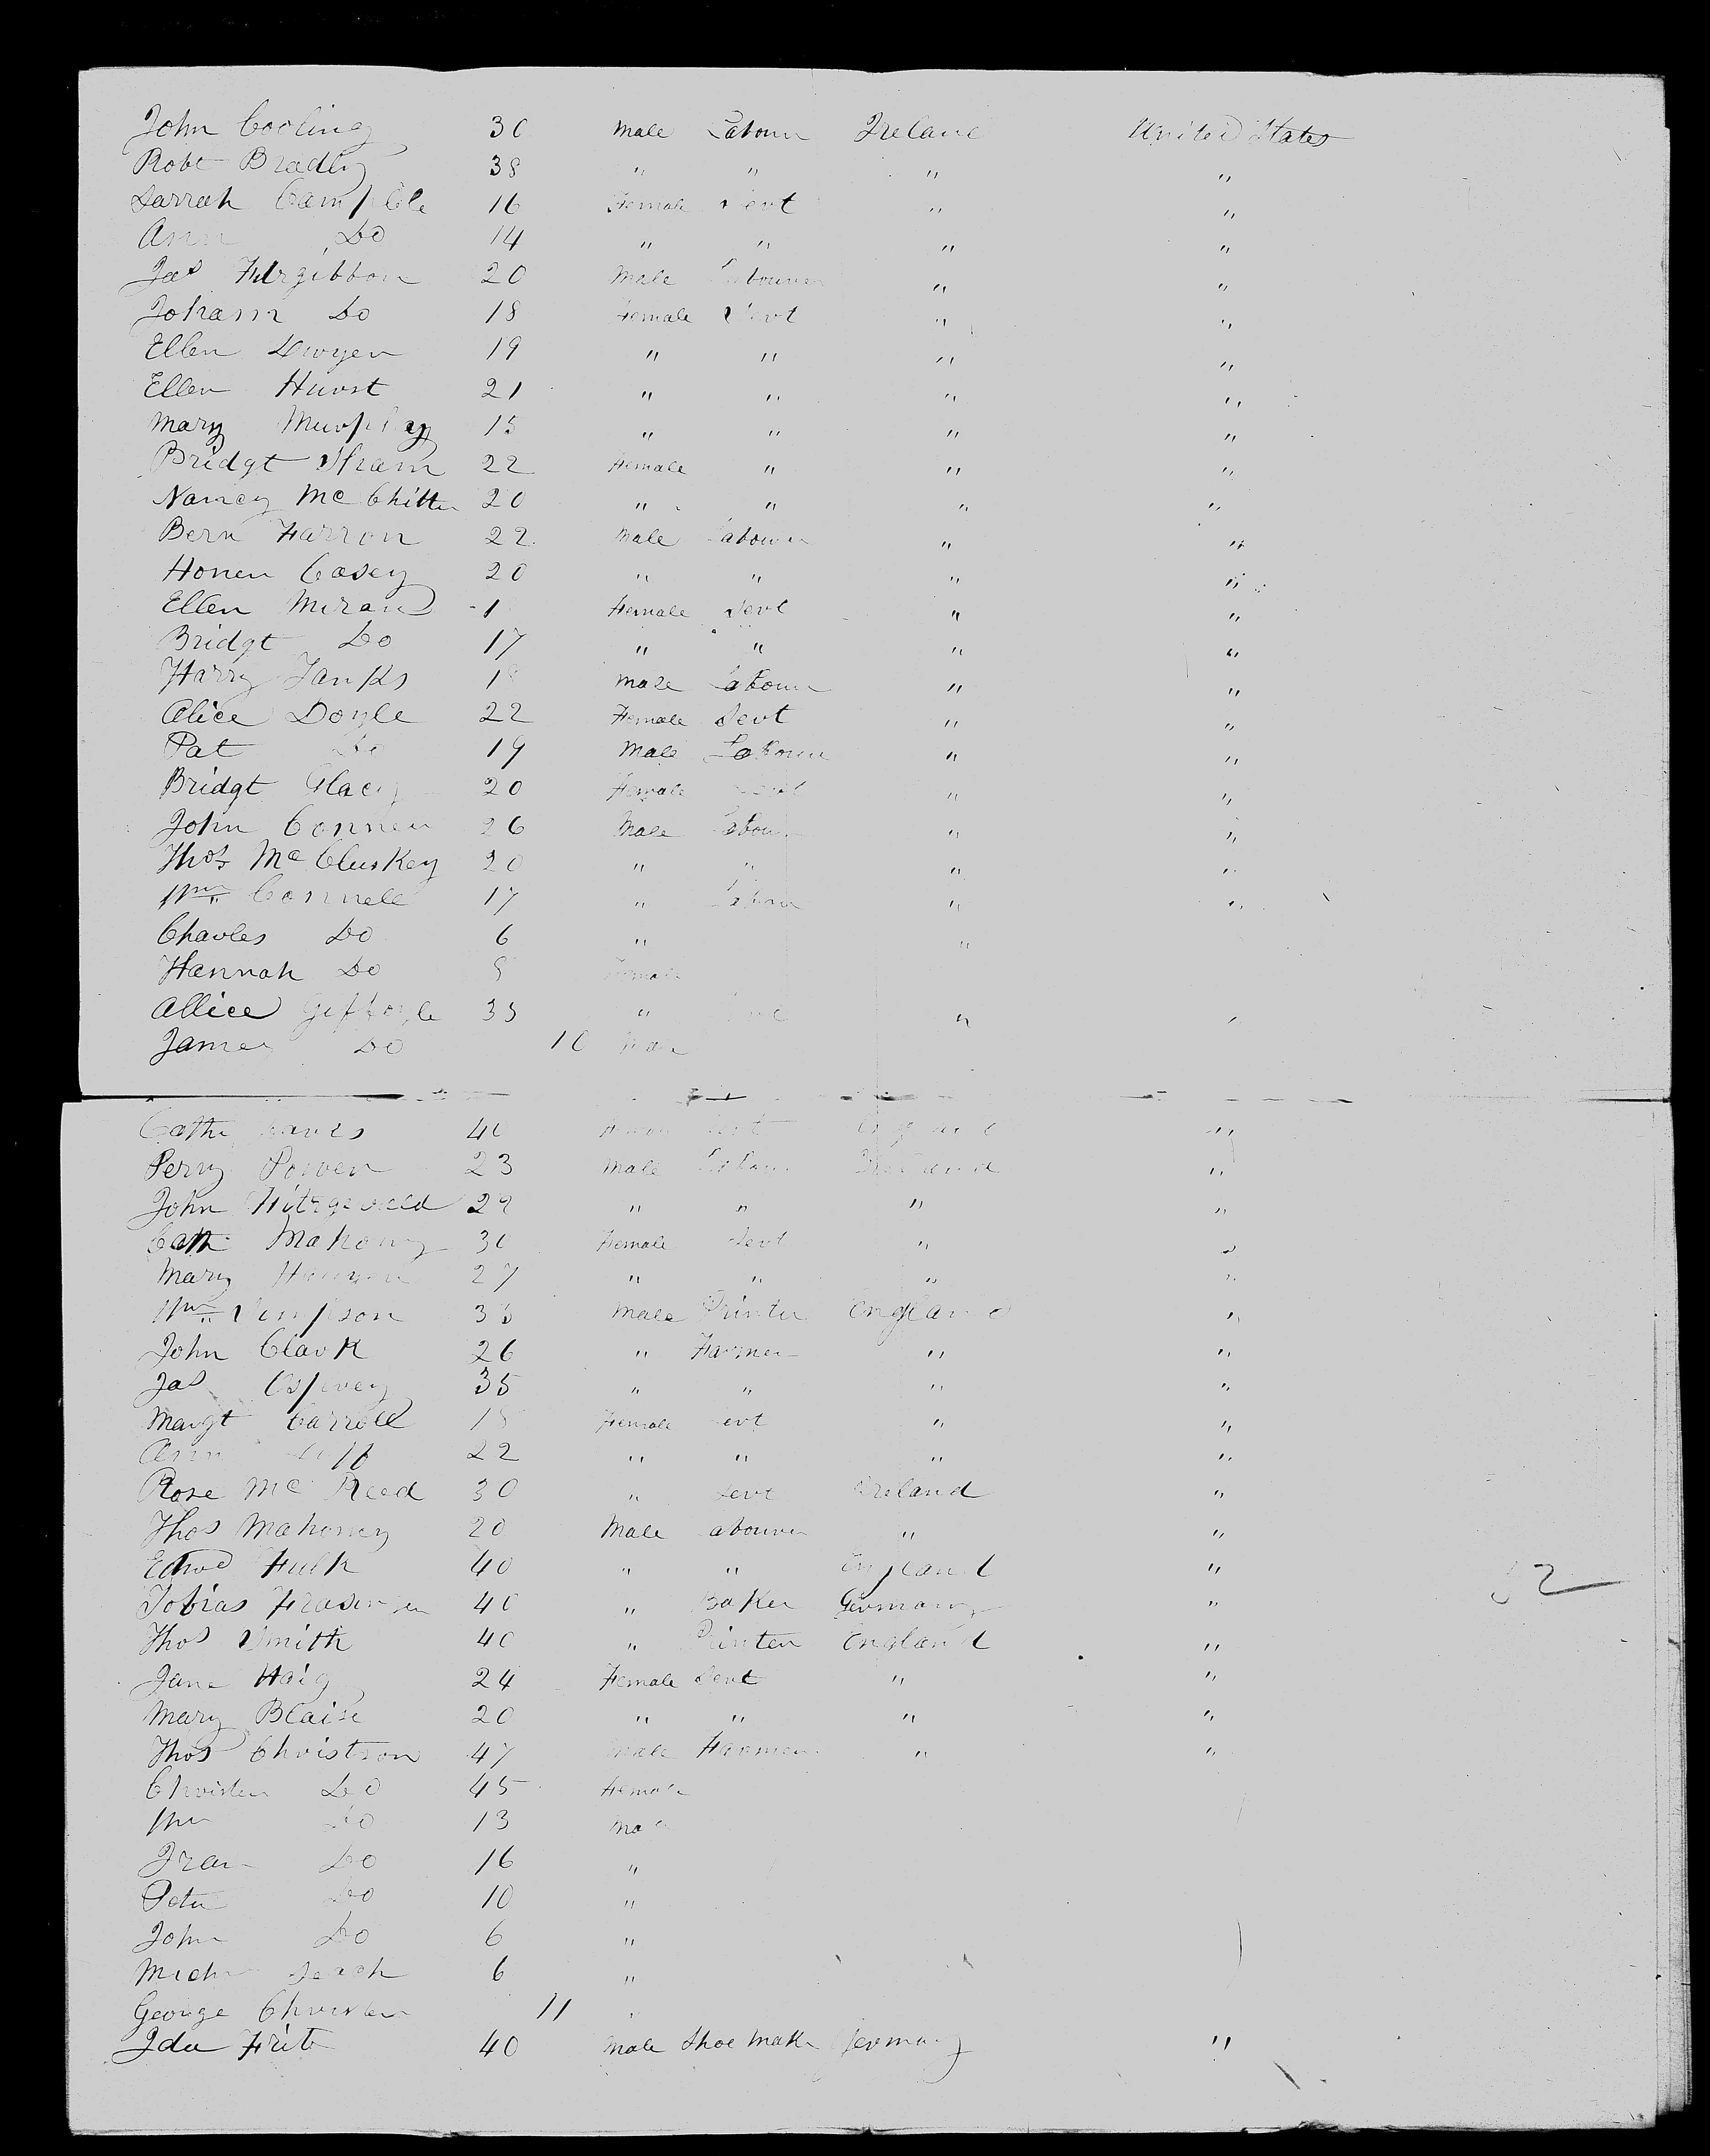 John Cooling 30 Male Labour Ireland United States
Robt Bradly 38 " " " "
Sarrah Campble 16 Female Sevt " "
Ann Do 14 " " " "
Jas Fitzgibbon 20 Male Labourer " "
Johann Do 18 Female Sevt " "
Ellen Dwyer 19 " " " "
Ellen Hurst 21 " " " "
Mary Murphy 15 " " " "
Bridgt 22 Female " " "
Nancy Mc 20 " " " "
Bern Farron 22 Male Labourer " "
Honer Casey 20 " " " "
Ellen Female Sevt " "
Bridgt Do 17 " " " "
Harry Janks 18 Male Labour " "
Alice Doyle 22 Female Sevt " "
Pat Do 19 Male Labour " "
Bridgt 20 Female Sevt " "
John Conner 26 Male Labour " "
Thos Mc Cluskey 20 " " " "
Wm Connell 17 " Labour " "
Charles Do 6 " "
Hannah Do Female
Allice 35 " "
James Do 10 Male
Cathe 40 Female Sevt England "
Perry Power 23 Male Labour Ireland "
John Fitzgerald 29 " " " "
Cath Mahony 30 Female Sevt " "
Mary 27 " " " "
Wm Simpson 35 Male Printer England "
John Clark 26 " Farmer " "
Jas 35 " " " "
Margt Carroll Female Sevt " "
Ann 22 " " " "
Rose Mc Reed 30 " Sevt Ireland "
Thos Mahoney 20 Male Labourer " "
Edwd 40 " " England "
Tobias 40 " Baker Germany "
Thos Smith 40 " Printer England "
Jane Haig 24 Female Sevt " "
Mary Blaise 20 " " " "
Thos Christson 47 Male Farmer " "
Do 45 Female
Wm Do 13 Male
Do 16 "
Peter Do 10 "
John Do 6 "
6 "
George 11 "
40 Male Shoe Maker Germany "